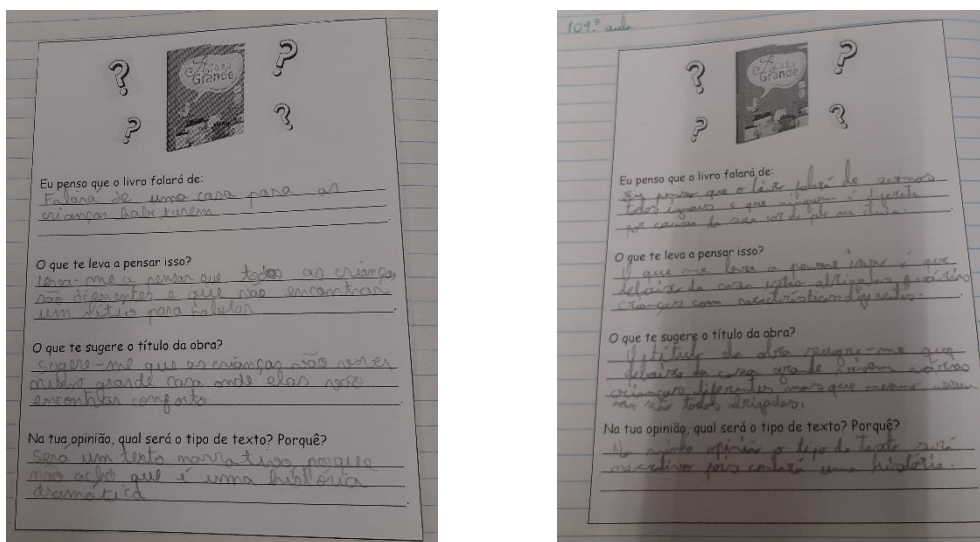 A Casa
Grande
Eu penso que o livro falará de:
Falará de uma casa para as
crianças habitarem
O que te leva a pensar isso?
leva-me a pensar que todas as crianças
são diferentes e que vão encontrar
um sitio para habitar
O que te sugere o título da obra?
Sugere-me que as crianças vão viver
grande casa onde elas vão
encontrar conforto
Na tua opinião, qual será o tipo de texto? Porquê?
Será um texto narrativo porque
não acho que é uma história
dramática
109.ª aula
A Casa
Grande
Eu penso que o livro falará de:
Eu penso que o livro falará de sermos
todos iguais e que ninguém é diferente
por causa da sua cor de pele ou
O que te leva a pensar isso?
O que me leva a pensar isso é que
debaixo da casa estão várias
crianças com características diferentes.
O que te sugere o título da obra?
O título da obra sugere-me que
debaixo da casa grande vivem várias
crianças diferentes mas que mesmo assim
são todos
Na tua opinião, qual será o tipo de texto? Porquê?
Na minha opinião o tipo de texto será
narrativo pois contará uma história.